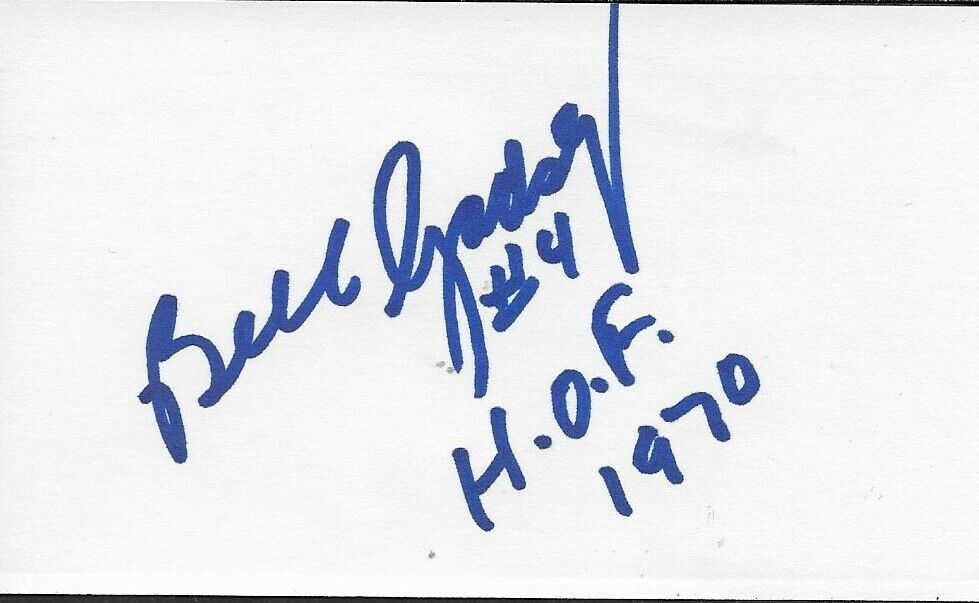 Bill Gadsby
#4
H.O.F.
1970